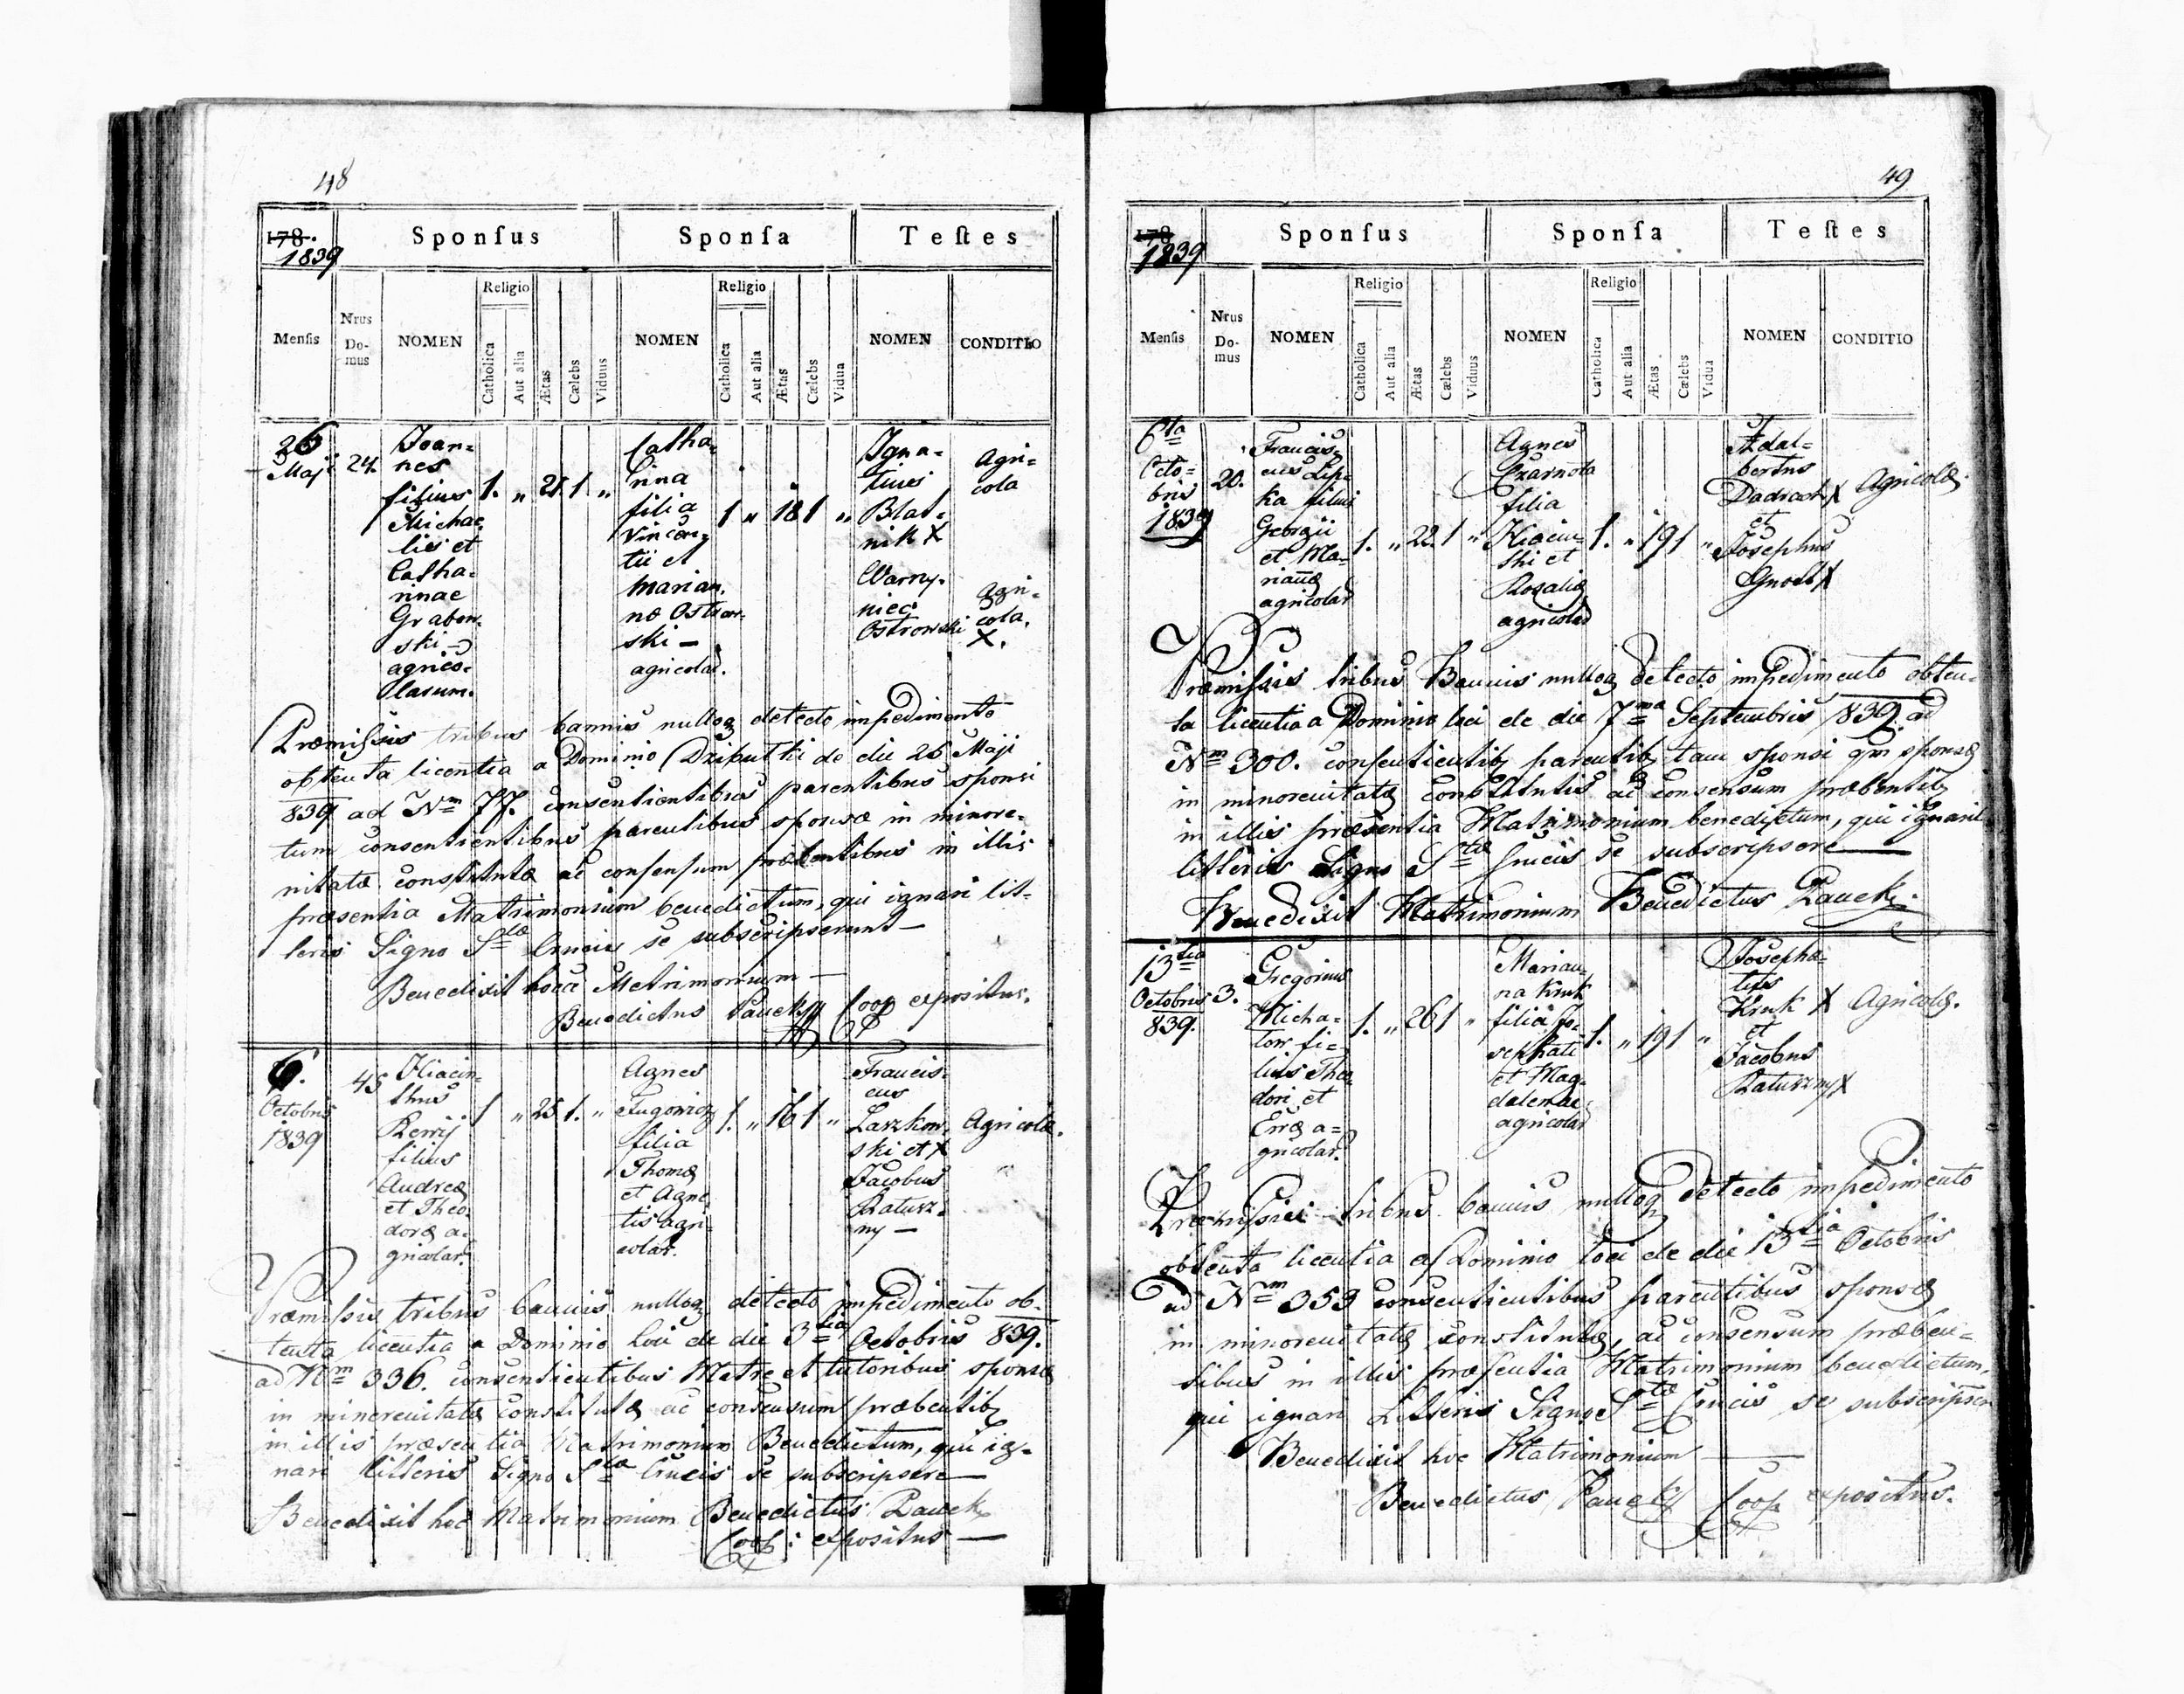 48
178.
1839
Sponſus
Sponſa
Teſtes
Menſis
Nrus
Do-
mus
NOMEN
Religio
Catholica
Aut alia
Ætas
Cælebs
Viduus
NOMEN
Religio
Catholica
Aut alia
Ætas
Cælebs
Vidua
NOMEN
CONDITIO
26
Maji
24.
Joan-
nes
filius
Michae-
lis et
Catha-
rinae
Grabow-
ski –
agrico-
larum.
1. „ 21. 1. „
Catha-
rina
filia
Vincen-
tii et
Marian-
næ Ostrow-
ski –
agricolar.
1 „ 18 1 „
Igna-
tius
Blat-
nik X
Wawrzy-
niec
Ostrowski
Agri-
cola
Agri-
cola.
X.
Præmiſsis tribus bannis nulloq detecto impedimento
obtenta licentia a Dominio Dziputki de die 26 Maji
839 ad Nm 77. consentientibus parentibus sponsi
tum consentientibus parentibus sponsæ in minore-
nitate constitutæ ac conſenſum præbentibus in illis
præsentia Matrimonium benedictum, qui ignari lit-
teris Signo Stæ Crucis se subscripserunt –
Benedixit hocce Matrimonium –
Benedictus Paucky Coop expositus.
6.
Octobris
1839
45
Hiacin-
thus
Rerij
filius
Andreæ
et Theo-
doræ a-
gricolar.
1 „ 25 1. „
Agnes
Fugowicz
filia
Thomæ
et Agne-
tis agri-
colar.
1. „ 16 1 „
Francis-
cus
Laszkow-
ski et X
Jacobus
Raturz-
ny –
Agricolæ.
Præmiſsis tribus bannis nulloq detecto impedimento ob-
tenta licentia a Dominio Loci de die 3tia Octobris 839.
ad Nm 336. consentientibus Matre et tutoribus sponsæ
in minorenitate constitutæ ac consensum præbentibq
in illis præsentia Matrimonium Benedictum, qui ig-
nari litteris Signo Stæ Crucis se subscripsere –
Benedixit hoc Matrimonium Benedictus Paucky
Coop: expositus –
49
178
1839
Sponſus
Sponſa
Teſtes
Menſis
Nrus
Do-
mus
NOMEN
Religio
Catholica
Aut alia
Ætas
Cælebs
Viduus
NOMEN
Religio
Catholica
Aut alia
Ætas
Cælebs
Vidua
NOMEN
CONDITIO
6ta
Octo-
bris
1839
20.
Francis-
cus Lip-
ka filius
Georgii
et Ma-
riannæ
agricolar
1. „ 22. 1 „
Agnes
Czarnota
filia
Hiacin-
thi et
Rosaliæ
agricolar
1. „ 19 1 „
Adal-
bertus
Dadrach X
et
Josephus
Gnoth X
Agricolæ.
Præmiſsis tribus Bannis nulloq detecto impedimento obten-
ta licentia a Dominio loci de die 7ma Septembris 839. ad
Nm 300. conſentientibq parentibq tam sponsi qm sponsæ
in minorenitate constitutis ac consensum præbentibq
in illis præsentia Matrimonium benedictum, qui ignari
litteris Signo Stæ Crucis se subscripsere –
Benedixit Matrimonium Benedictus Paucky.
13tia
Octobris
839.
3.
Gregorius
Micha-
low fi-
lius Theo-
dori et
Evvæ a-
gricolar.
1. „ 26 1 „
Marian-
na Kruk
filia Jo-
sephati
et Mag-
dalenae
agricolar
1. „ 19 1 „
Josepha-
tus
Kruk X
et
Jacobus
Raturzny X
Agricolæ.
Præmiſsis tribus bannis nulloq detecto impedimento
obtenta licentia a Dominio loci de die 13tia Octobris
ad Nm 353 consentientibus parentibus sponsæ
in minorenitate constitutæ, ac consensum præben-
tibus in illis præſentia Matrimonium benedictum,
qui ignari Litteris Signo Stæ Crucis se subscripsere
Benedixit hoc Matrimonium –
Benedictus Paucky Coop expositus.